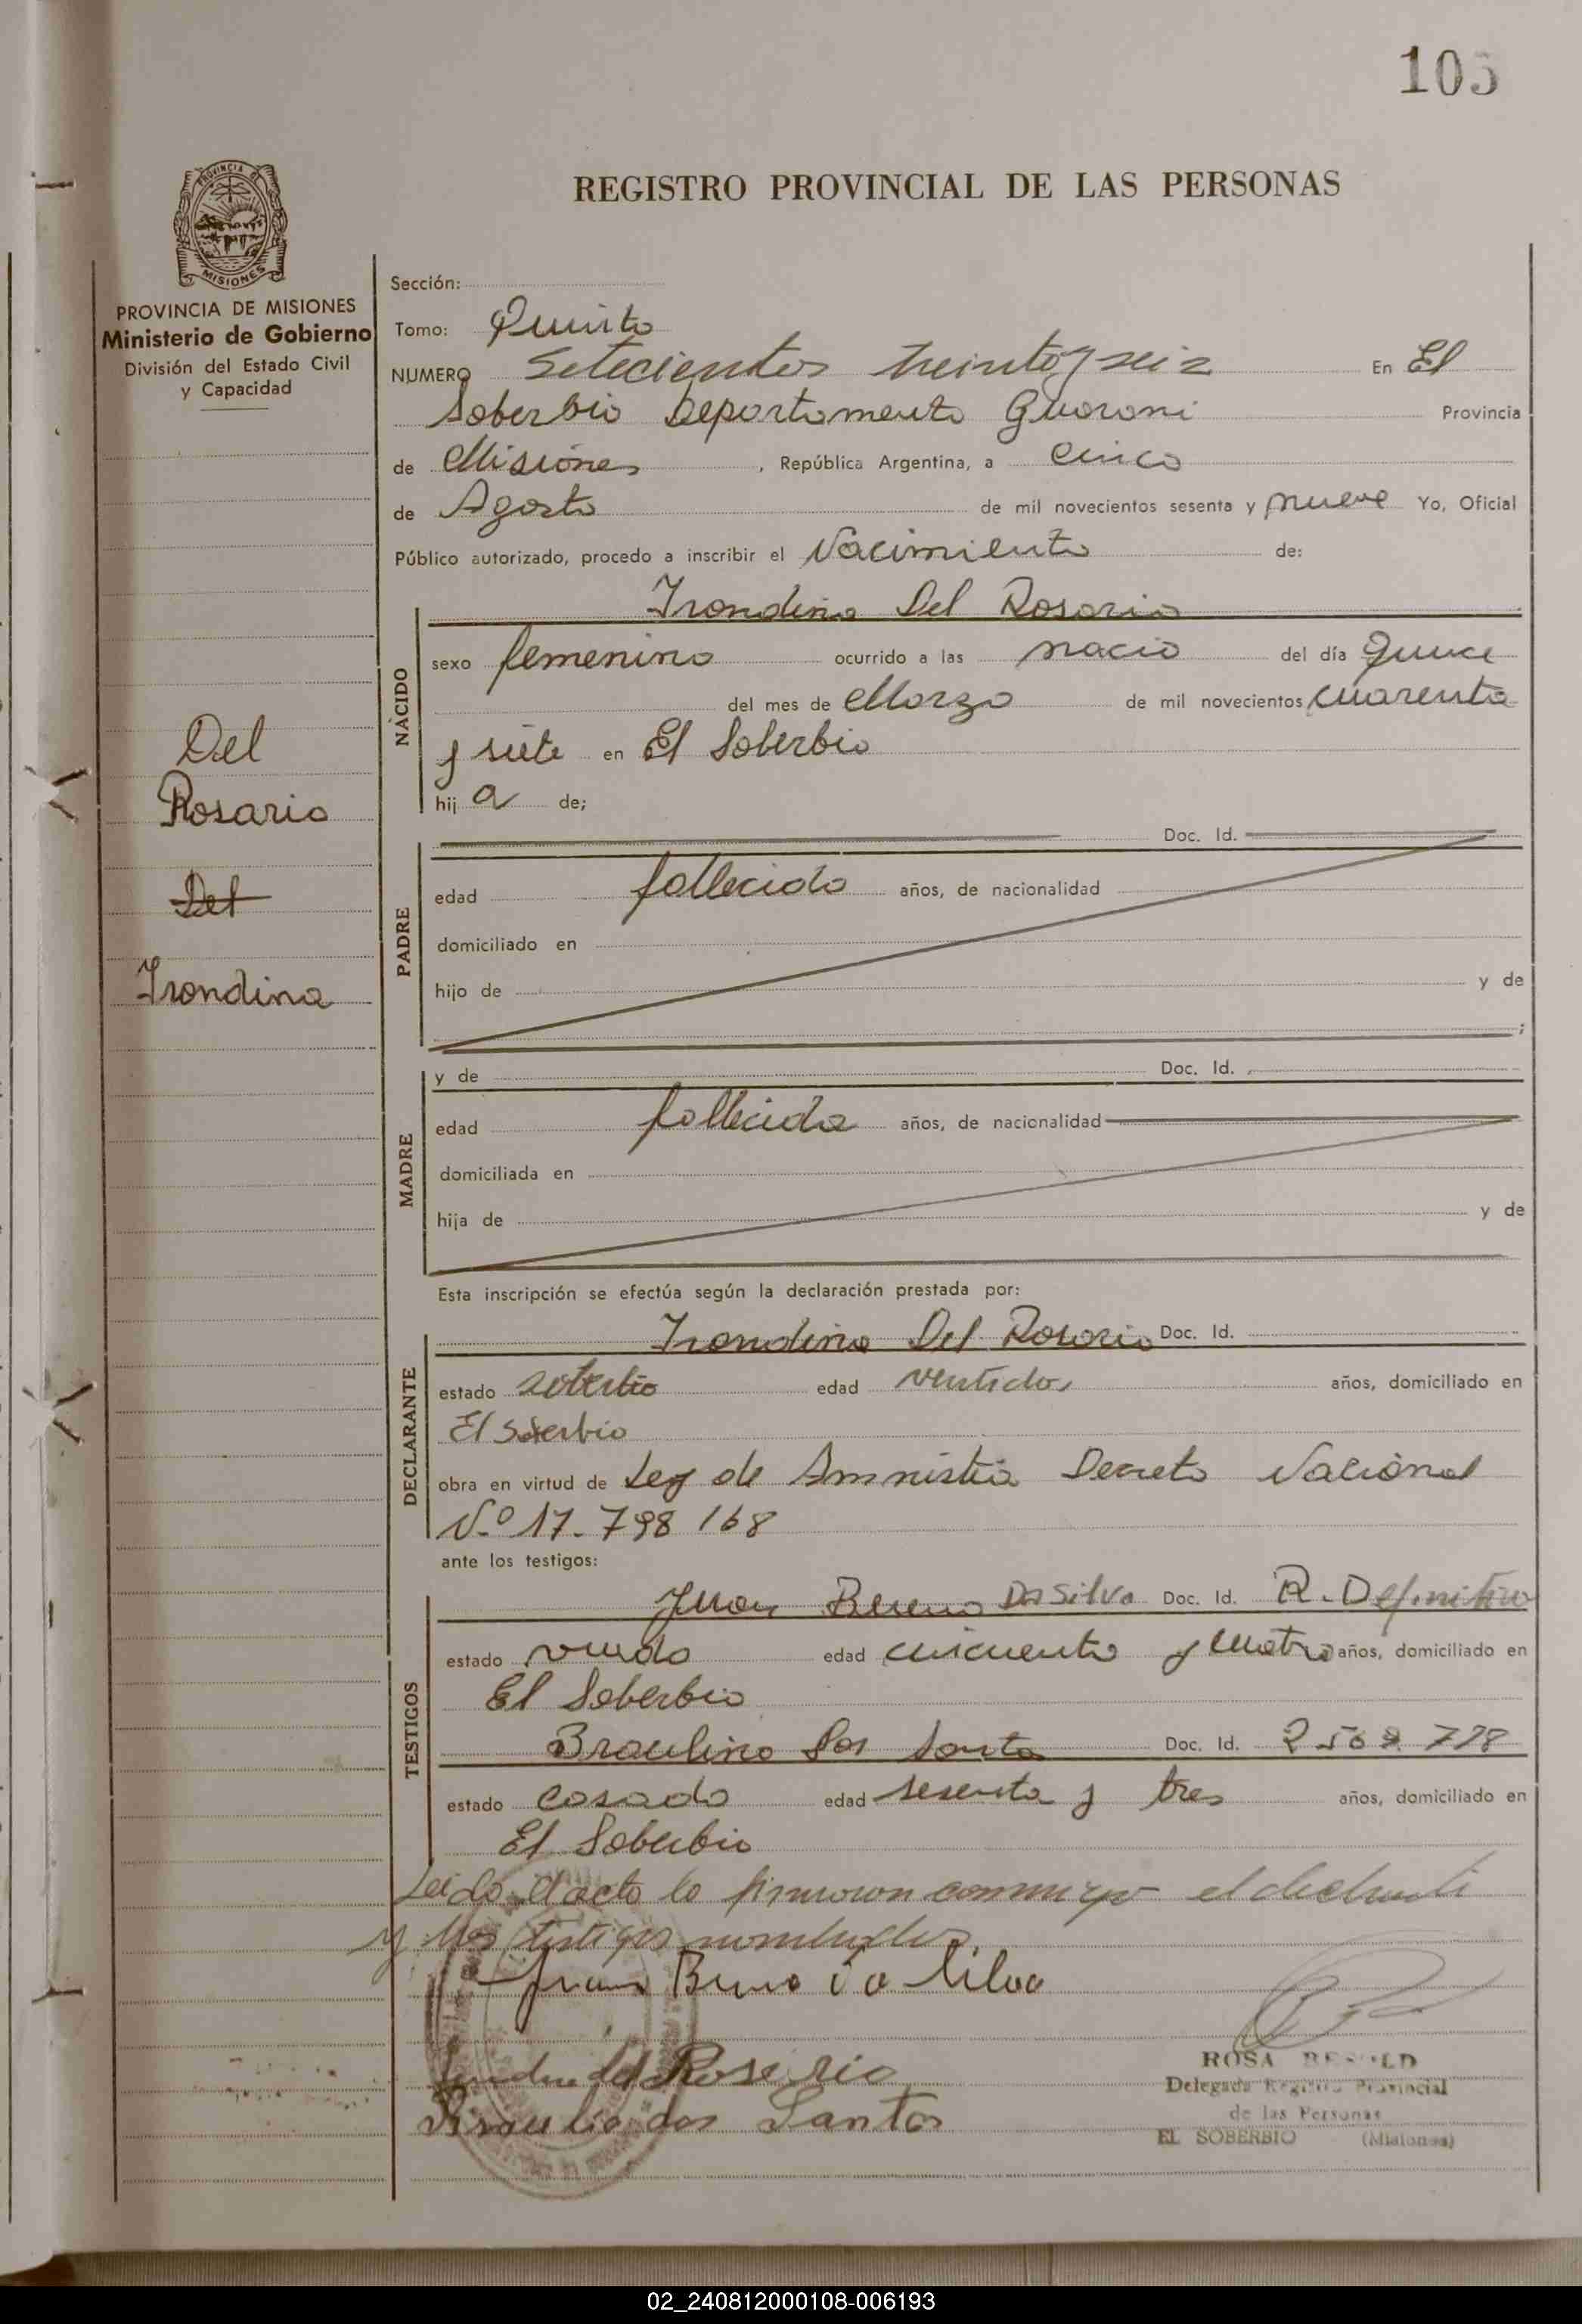 105
REGISTRO PROVINCIAL DE LAS PERSONAS
PROVINCIA DE MISIONES
Ministerio de Gobierno
División del Estado Civil
y Capacidad
Sección:
Tomo: Quinto
NUMERO Setecientos treinta y seis En El
Soberbio Departamento Guarani Provincia
de Misiones, República Argentina, a cinco
de Agosto de mil novecientos sesenta y nueve Yo, Oficial
Público autorizado, procedo a inscribir el Nacimiento de:
Irondina Del Rosario
NACIDO
sexo femenino ocurrido a las nacio del día quince
del mes de Marzo de mil novecientos cuarenta
y siete en El Soberbio
hij a de;
Del
Rosario
Del
Irondina
Doc. Id.
PADRE
edad fallecido años, de nacionalidad
domiciliado en
hijo de y de
;
y de Doc. Id.
MADRE
edad fallecida años, de nacionalidad
domiciliada en
hija de y de
Esta inscripción se efectúa según la declaración prestada por:
Irondina Del Rosario Doc. Id.
DECLARANTE
estado edad ventidos años, domiciliado en
El Soberbio
obra en virtud de Ley de Amnistia Decreto Nacional
N.º 17.798/68
ante los testigos:
Juan Bueno Da Silva Doc. Id. R. Definitivo
TESTIGOS
estado viudo edad cincuenta y cuatro años, domiciliado en
El Soberbio
Braulino Dos Santo Doc. Id. 2 569 728
estado casado edad sesenta y tres años, domiciliado en
El Soberbio
Leido el acta lo firmaron conmigo el declarante
y los testigos nombrados.
Juan Bueno da Silva
del Rosario
Braulio dos Santos
ROSA
Delegada Registro Provincial
de las Personas
EL SOBERBIO (Misiones)
02_240812000108-006193